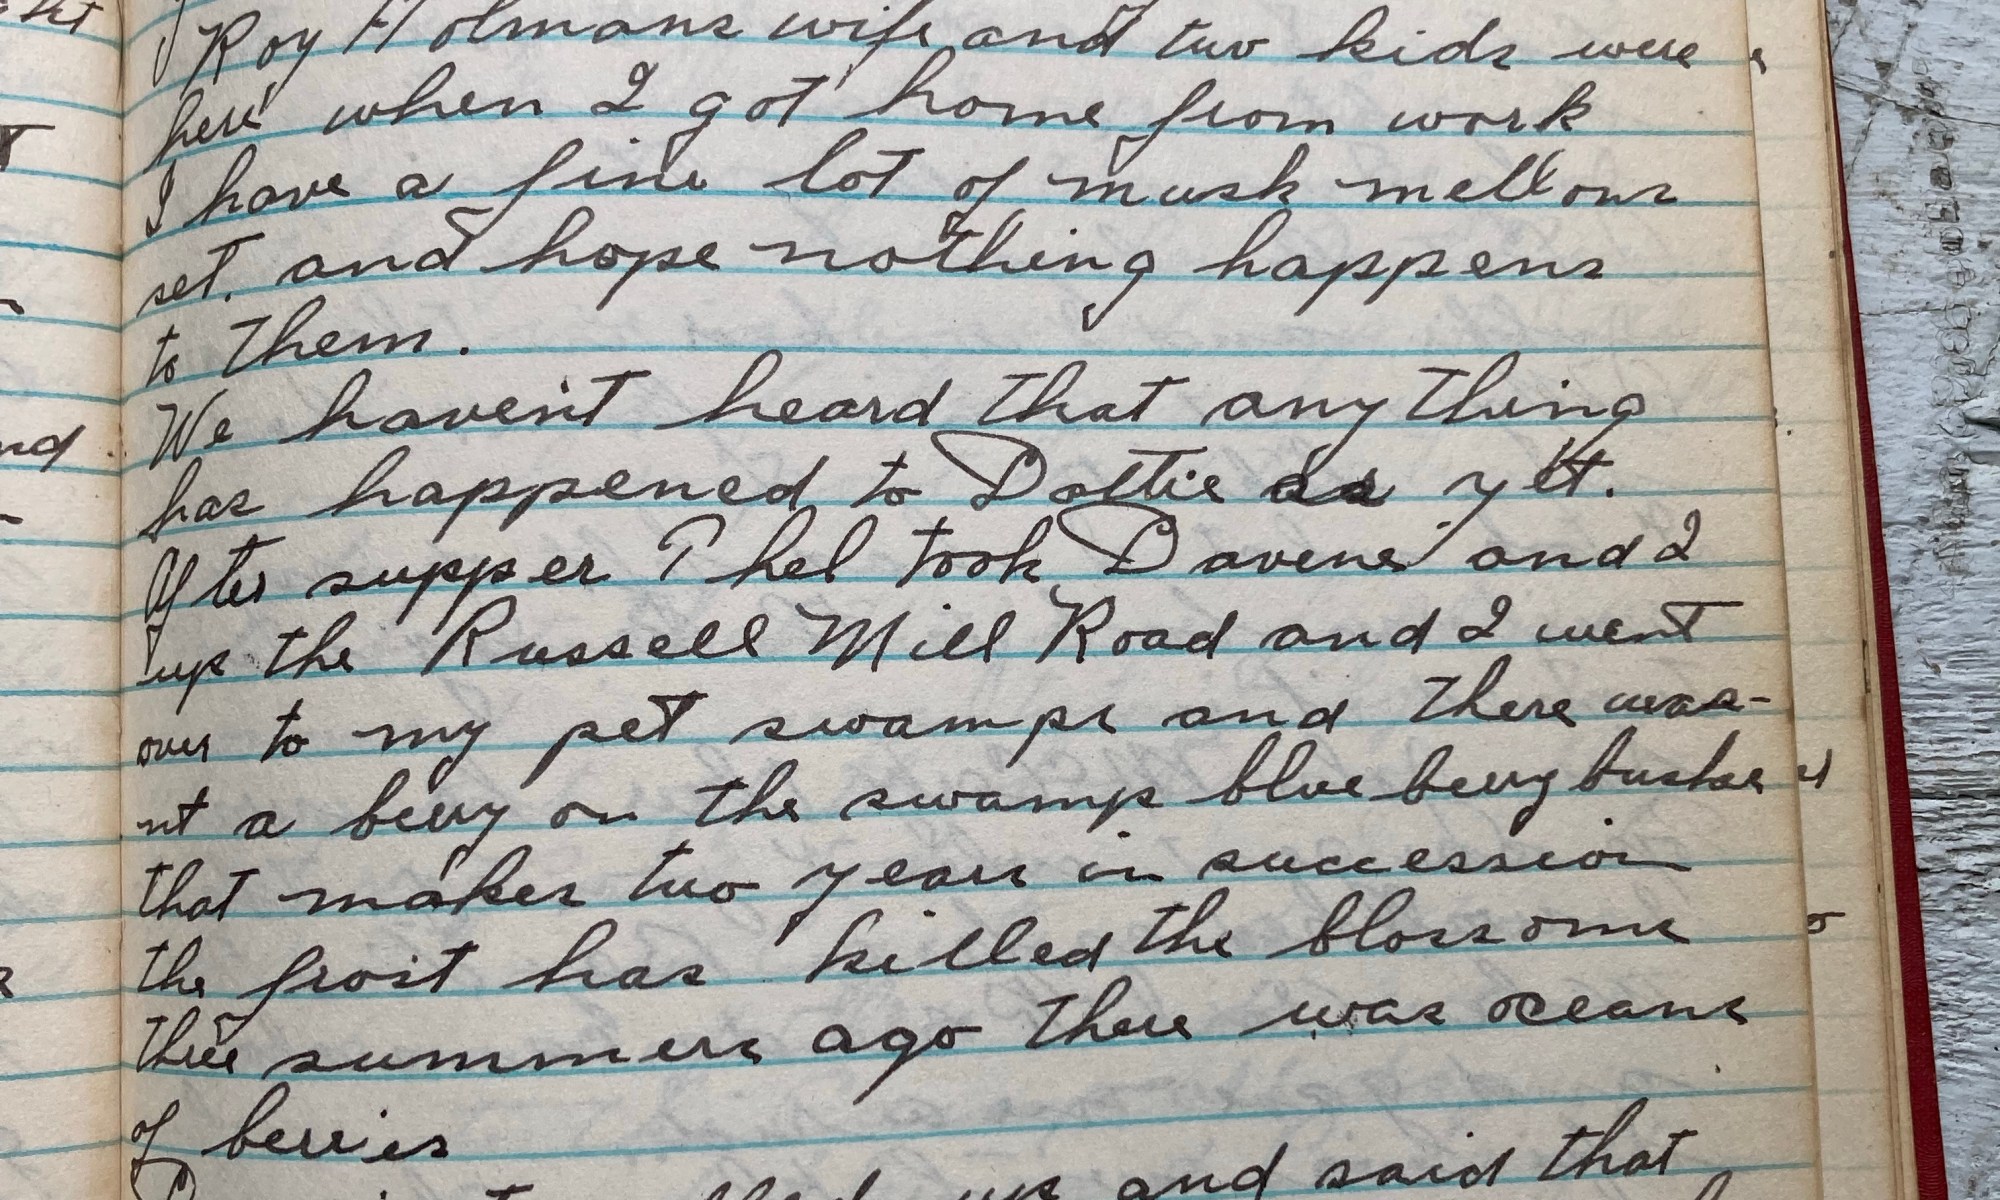 Roy Holmans wife and two kids were
here when I got home from work
I have a fine lot of musk mellons
set. and hope nothing happens
to them.
We haven't heard that any thing
has happened to Dottie as yet.
After supper Phel took Davene and I
up the Russell Mill Road and I went
over to my pet swamps and there was-
nt a berry on the swamp blue berry bushes
that makes two years in succession
the frost has killed the blossoms
three summers ago there was oceans
of berries
up and said that